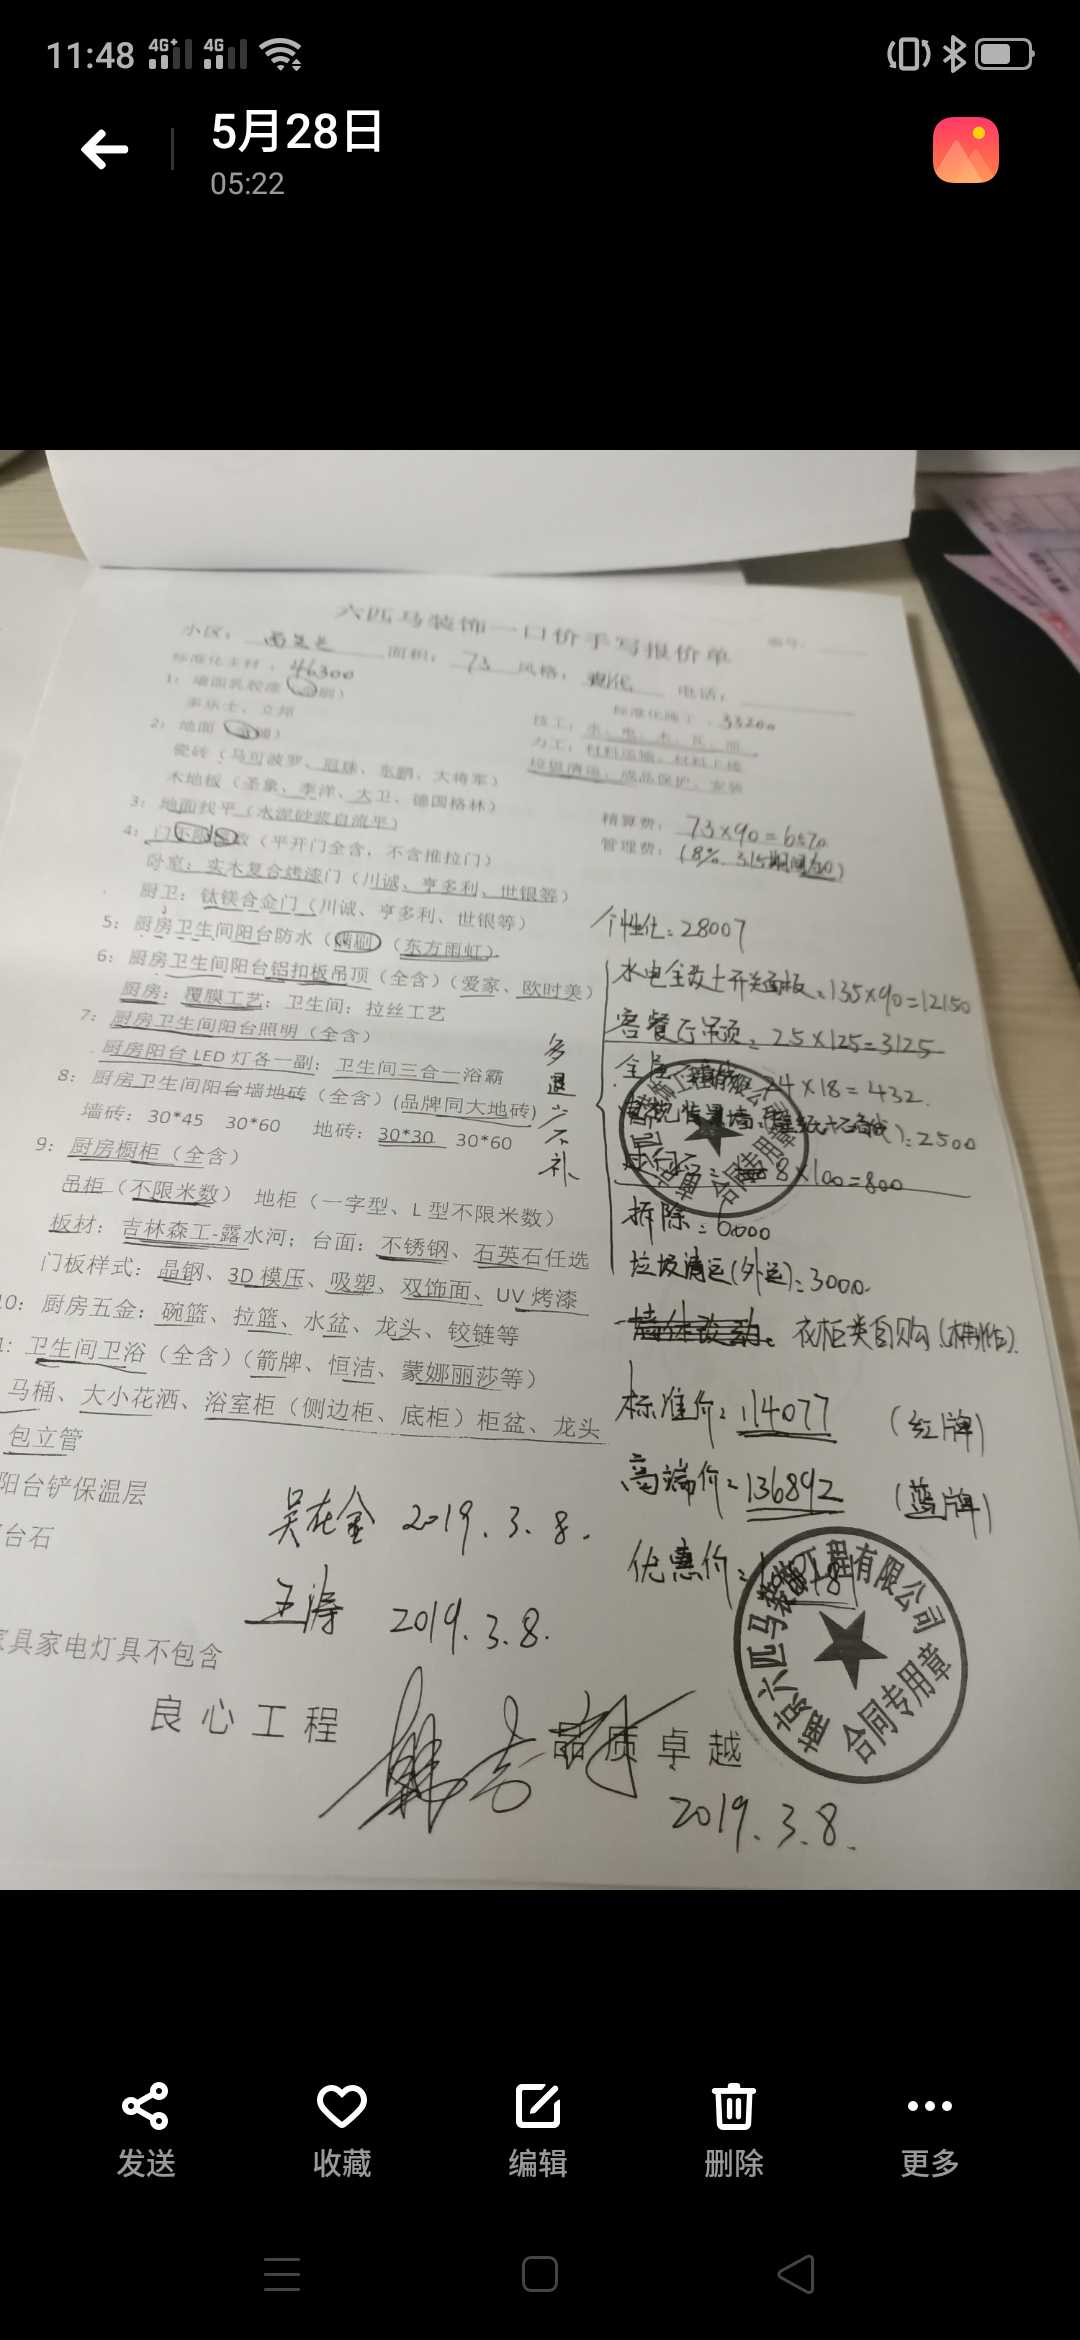 11:48
5月28日
05:22
六匹马装饰一口价手写报价单 编号:
小区: 面积: 73 风格: 现代 电话:
标准化主材: 46300
标准化施工: 33200
1: 墙面乳胶漆
多乐士、立邦
技工: 水、电、木、瓦、油
2: 地面
力工: 材料运输、材料上楼
瓷砖(马可波罗、冠珠、东鹏、大将军)
垃圾清运、成品保护、安装
木地板(圣象、李洋、大卫、德国格林)
3: 地面找平(水泥砂浆自流平)
精算费: 73×90=6570
4: 门不限(平开门全含,不含推拉门)
管理费: (8%. 315期间
卧室: 实木复合烤漆门(川诚、亨多利、世银等)
厨卫: 钛镁合金门(川诚、亨多利、世银等)
个性化: 28007
5: 厨房卫生间阳台防水(满刷)(东方雨虹)
6: 厨房卫生间阳台铝扣板吊顶(全含)(爱家、欧时美)
水电全改+开关面板: 135×90=12150
厨房: 覆膜工艺; 卫生间: 拉丝工艺
客餐厅吊顶: 25×125=3125
7: 厨房卫生间阳台照明(全含)
厨房阳台 LED 灯各一副; 卫生间三合一浴霸
24×18=432.
8: 厨房卫生间阳台墙地砖(全含)(品牌同大地砖)
电视背景墙 =2500
墙砖: 30*45 30*60 地砖: 30*30 30*60
8×100=800
多退少不补
9: 厨房橱柜(全含)
吊柜(不限米数) 地柜(一字型、L 型不限米数)
拆除: 6000
板材: 吉林森工-露水河; 台面: 不锈钢、石英石任选
垃圾清运(外运): 3000.
门板样式: 晶钢、3D 模压、吸塑、双饰面、UV 烤漆
墙体改动: 衣柜类自购
10: 厨房五金: 碗篮、拉篮、水盆、龙头、铰链等
1: 卫生间卫浴(全含)(箭牌、恒洁、蒙娜丽莎等)
标准价: 114077 (红牌)
马桶、大小花洒、浴室柜(侧边柜、底柜)柜盆、龙头
高端价: 136892 (蓝牌)
包立管
阳台铲保温层
优惠价:
台石
吴在金 2019.3.8.
王涛 2019.3.8.
家具家电灯具不包含
南京六匹马装饰工程有限公司
合同专用章
良心工程 品质卓越
2019.3.8.
发送 收藏 编辑 删除 更多